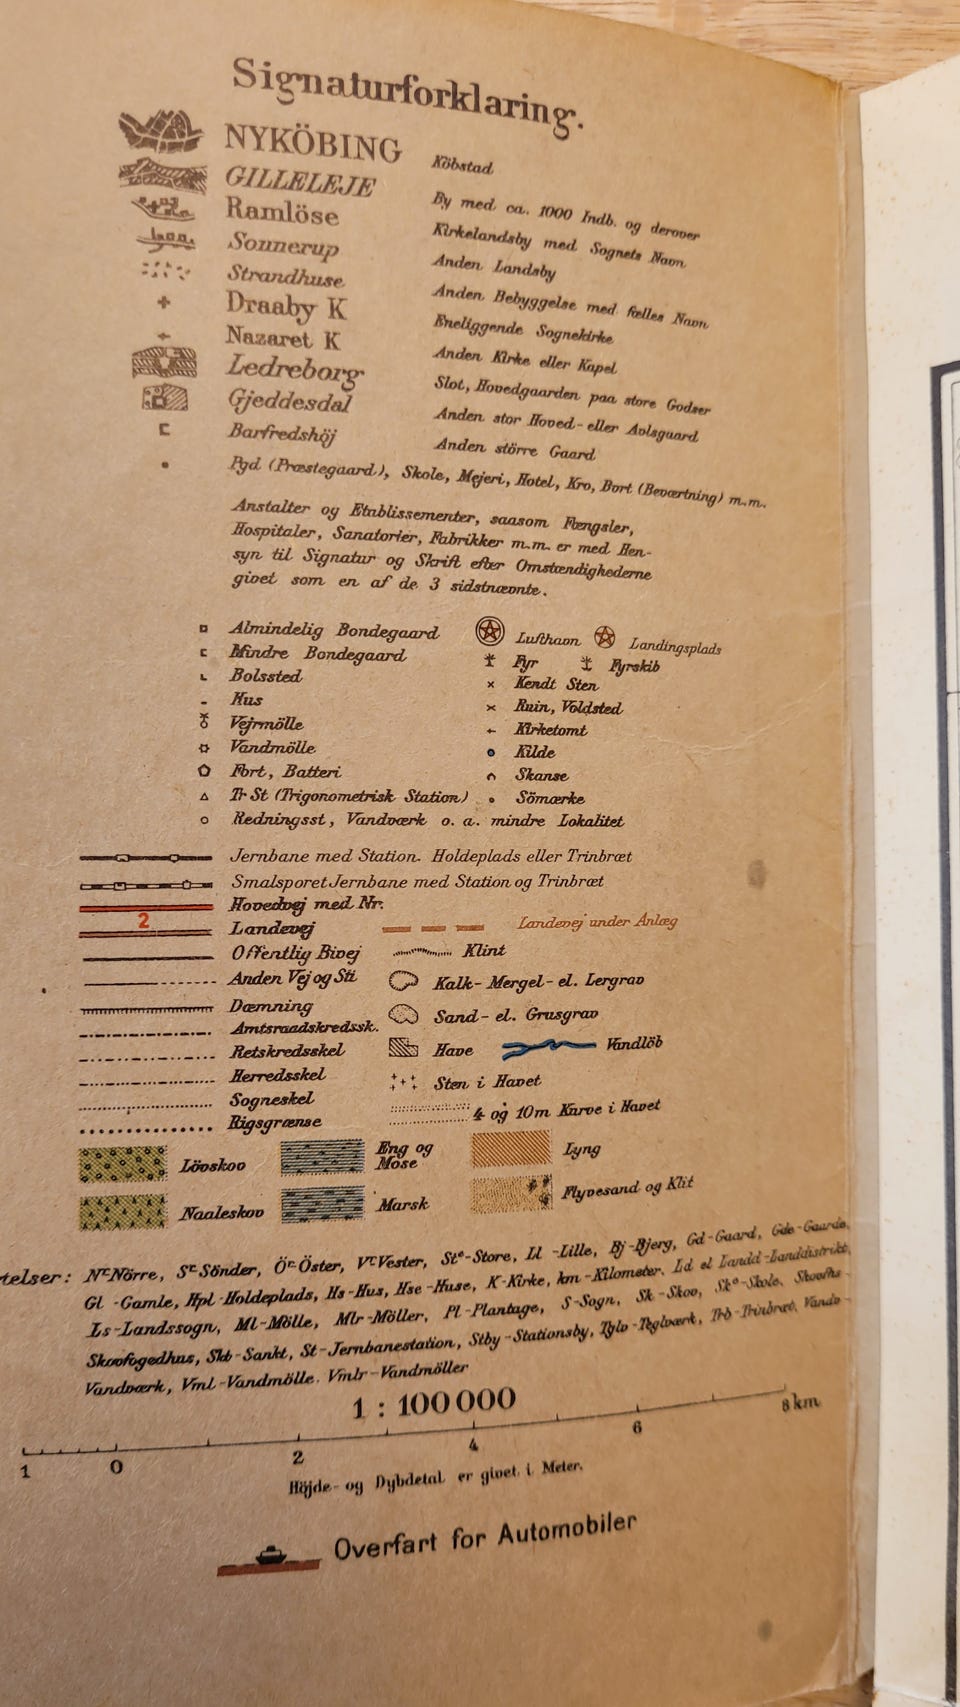 Signaturforklaring.
NYKÖBING Köbstad
GILLELEJE By med ca. 1000 Indb. og derover
Ramlöse Kirkelandsby med Sognets Navn
Sonnerup Anden Landsby
Strandhuse Anden Bebyggelse med fælles Navn
Draaby K Eneliggende Sognekirke
Nazaret K Anden Kirke eller Kapel
Ledreborg Slot, Hovedgaarden paa store Godser
Gjeddesdal Anden stor Hoved- eller Avlsgaard
Barfredshöj Anden större Gaard
Pgd (Præstegaard), Skole, Mejeri, Hotel, Kro, Bvrt (Beværtning) m.m.
Anstalter og Etablissementer, saasom Fængsler,
Hospitaler, Sanatorier, Fabrikker m.m. er med Hen-
syn til Signatur og Skrift efter Omstændighederne
givet som en af de 3 sidstnævnte.
Almindelig Bondegaard Lufthavn Landingsplads
Mindre Bondegaard Fyr Fyrskib
Bolssted Kendt Sten
Hus Ruin, Voldsted
Vejrmölle Kirketomt
Vandmölle Kilde
Fort, Batteri Skanse
Tr St (Trigonometrisk Station) Sömærke
Redningsst, Vandværk o. a. mindre Lokalitet
Jernbane med Station. Holdeplads eller Trinbræt
Smalsporet Jernbane med Station og Trinbræt
Hovedvej med Nr.
2
Landevej Landevej under Anlæg
Offentlig Bivej Klint
Anden Vej og Sti Kalk- Mergel- el. Lergrav
Dæmning Sand- el. Grusgrav
Amtsraadskredssk.
Retskredsskel Have Vandlöb
Herredsskel Sten i Havet
Sogneskel 4 og 10m Kurve i Havet
Rigsgrænse
Lövskov Eng og Mose Lyng
Naaleskov Marsk Flyvesand og Klit
telser: Nr-Nörre, Sr-Sönder, Ör-Öster, Vr-Vester, Ste-Store, Ll -Lille, Bj-Bjerg, Gd-Gaard, Gde-Gaarde,
Gl -Gamle, Hpl-Holdeplads, Hs-Hus, Hse-Huse, K-Kirke, km-Kilometer, Ld el Landd-Landdistrikt,
Ls-Landssogn, Ml-Mölle, Mlr-Möller, Pl-Plantage, S-Sogn, Sk-Skov, Ske-Skole,
Skovfogedhus, Skt-Sankt, St-Jernbanestation, Stby-Stationsby, Tglv-Teglværk, Trb-Trinbræt, Vandv-
Vandværk, Vml-Vandmölle. Vmlr-Vandmöller
1 : 100 000
1 0 2 4 6 8 km
Höjde- og Dybdetal er givet i Meter.
Overfart for Automobiler